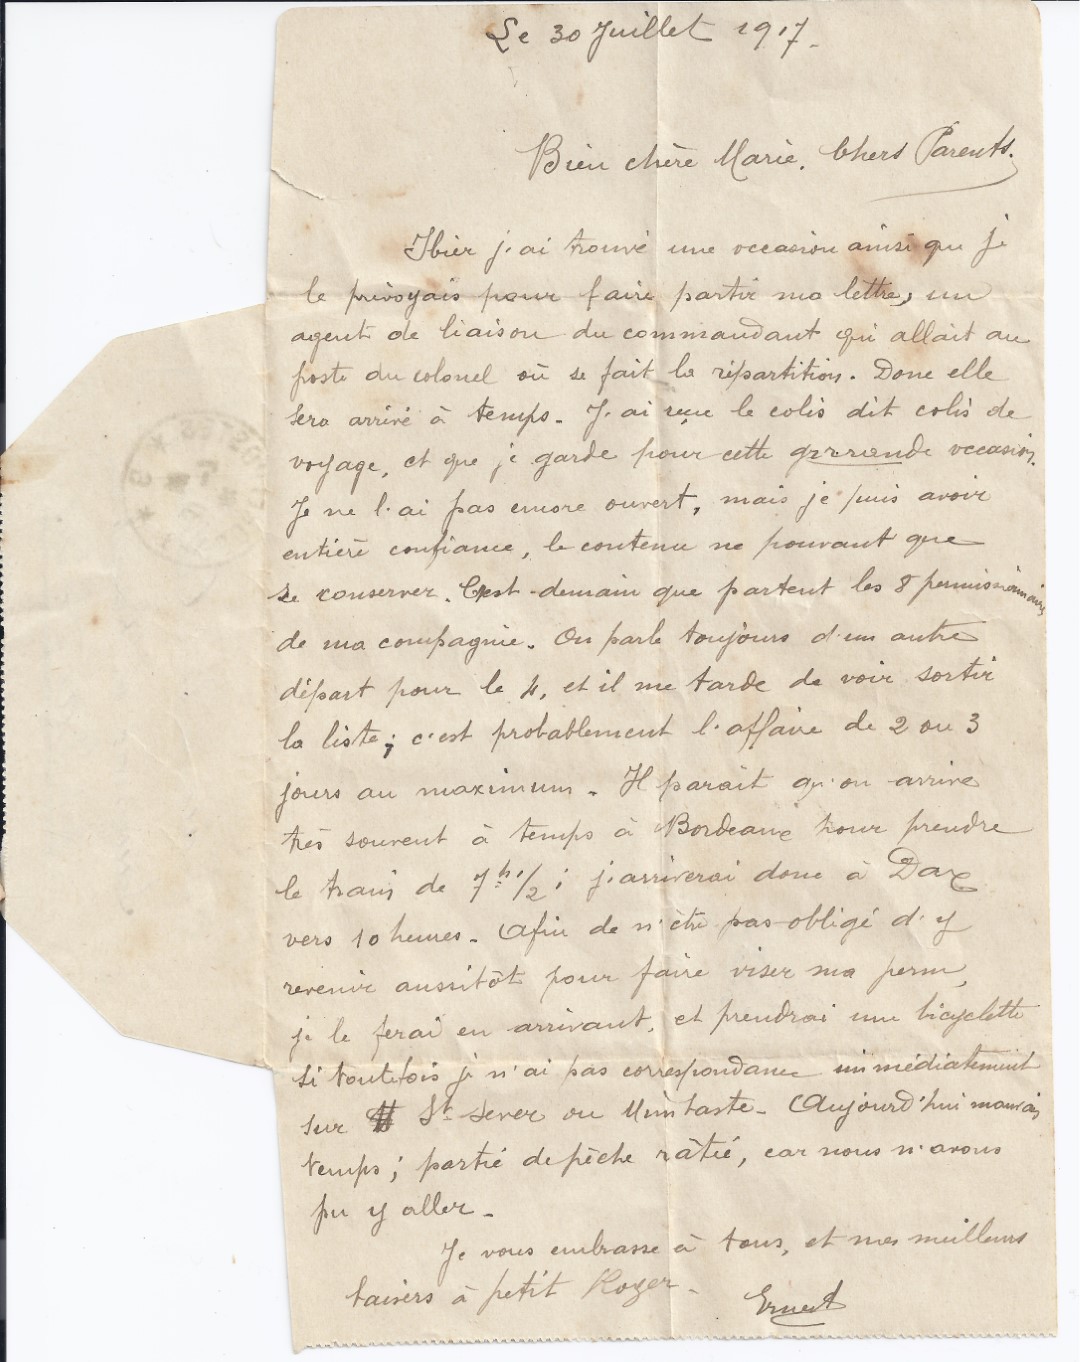 Le 30 Juillet 1917.
Bien chère Marie, Chers Parents.
Hier j'ai trouvé une occasion ainsi que je
le prévoyais pour faire partir ma lettre, un
agent de liaison du commandant qui allait au
poste du colonel où se fait la répartition. Donc elle
sera arrivé à temps. J'ai reçu le colis dit colis de
voyage, et que je garde pour cette grrrande occasion.
Je ne l'ai pas encore ouvert, mais je puis avoir
entière confiance, le contenu ne pouvant que
se conserver. C'est demain que partent les 8 permissionnaires
de ma compagnie. On parle toujours d'un autre
départ pour le 4, et il me tarde de voir sortir
la liste; c'est probablement l'affaire de 2 ou 3
jours au maximum. Il parait qu'on arrive
très souvent à temps à Bordeaux pour prendre
le train de 7h 1/2; j'arriverai donc à Dax
vers 10 heures. Afin de n'être pas obligé d'y
revenir aussitôt pour faire viser ma perm,
je le ferai en arrivant, et prendrai une bicyclette
si toutefois je n'ai pas correspondance immédiatement
sur St Sever ou Mimbaste. Aujourd'hui mauvais
temps; partie de pêche râtié, car nous n'avons
pu y aller.
Je vous embrasse à tous, et mes meilleurs
baisers à petit Roger.
Ernest